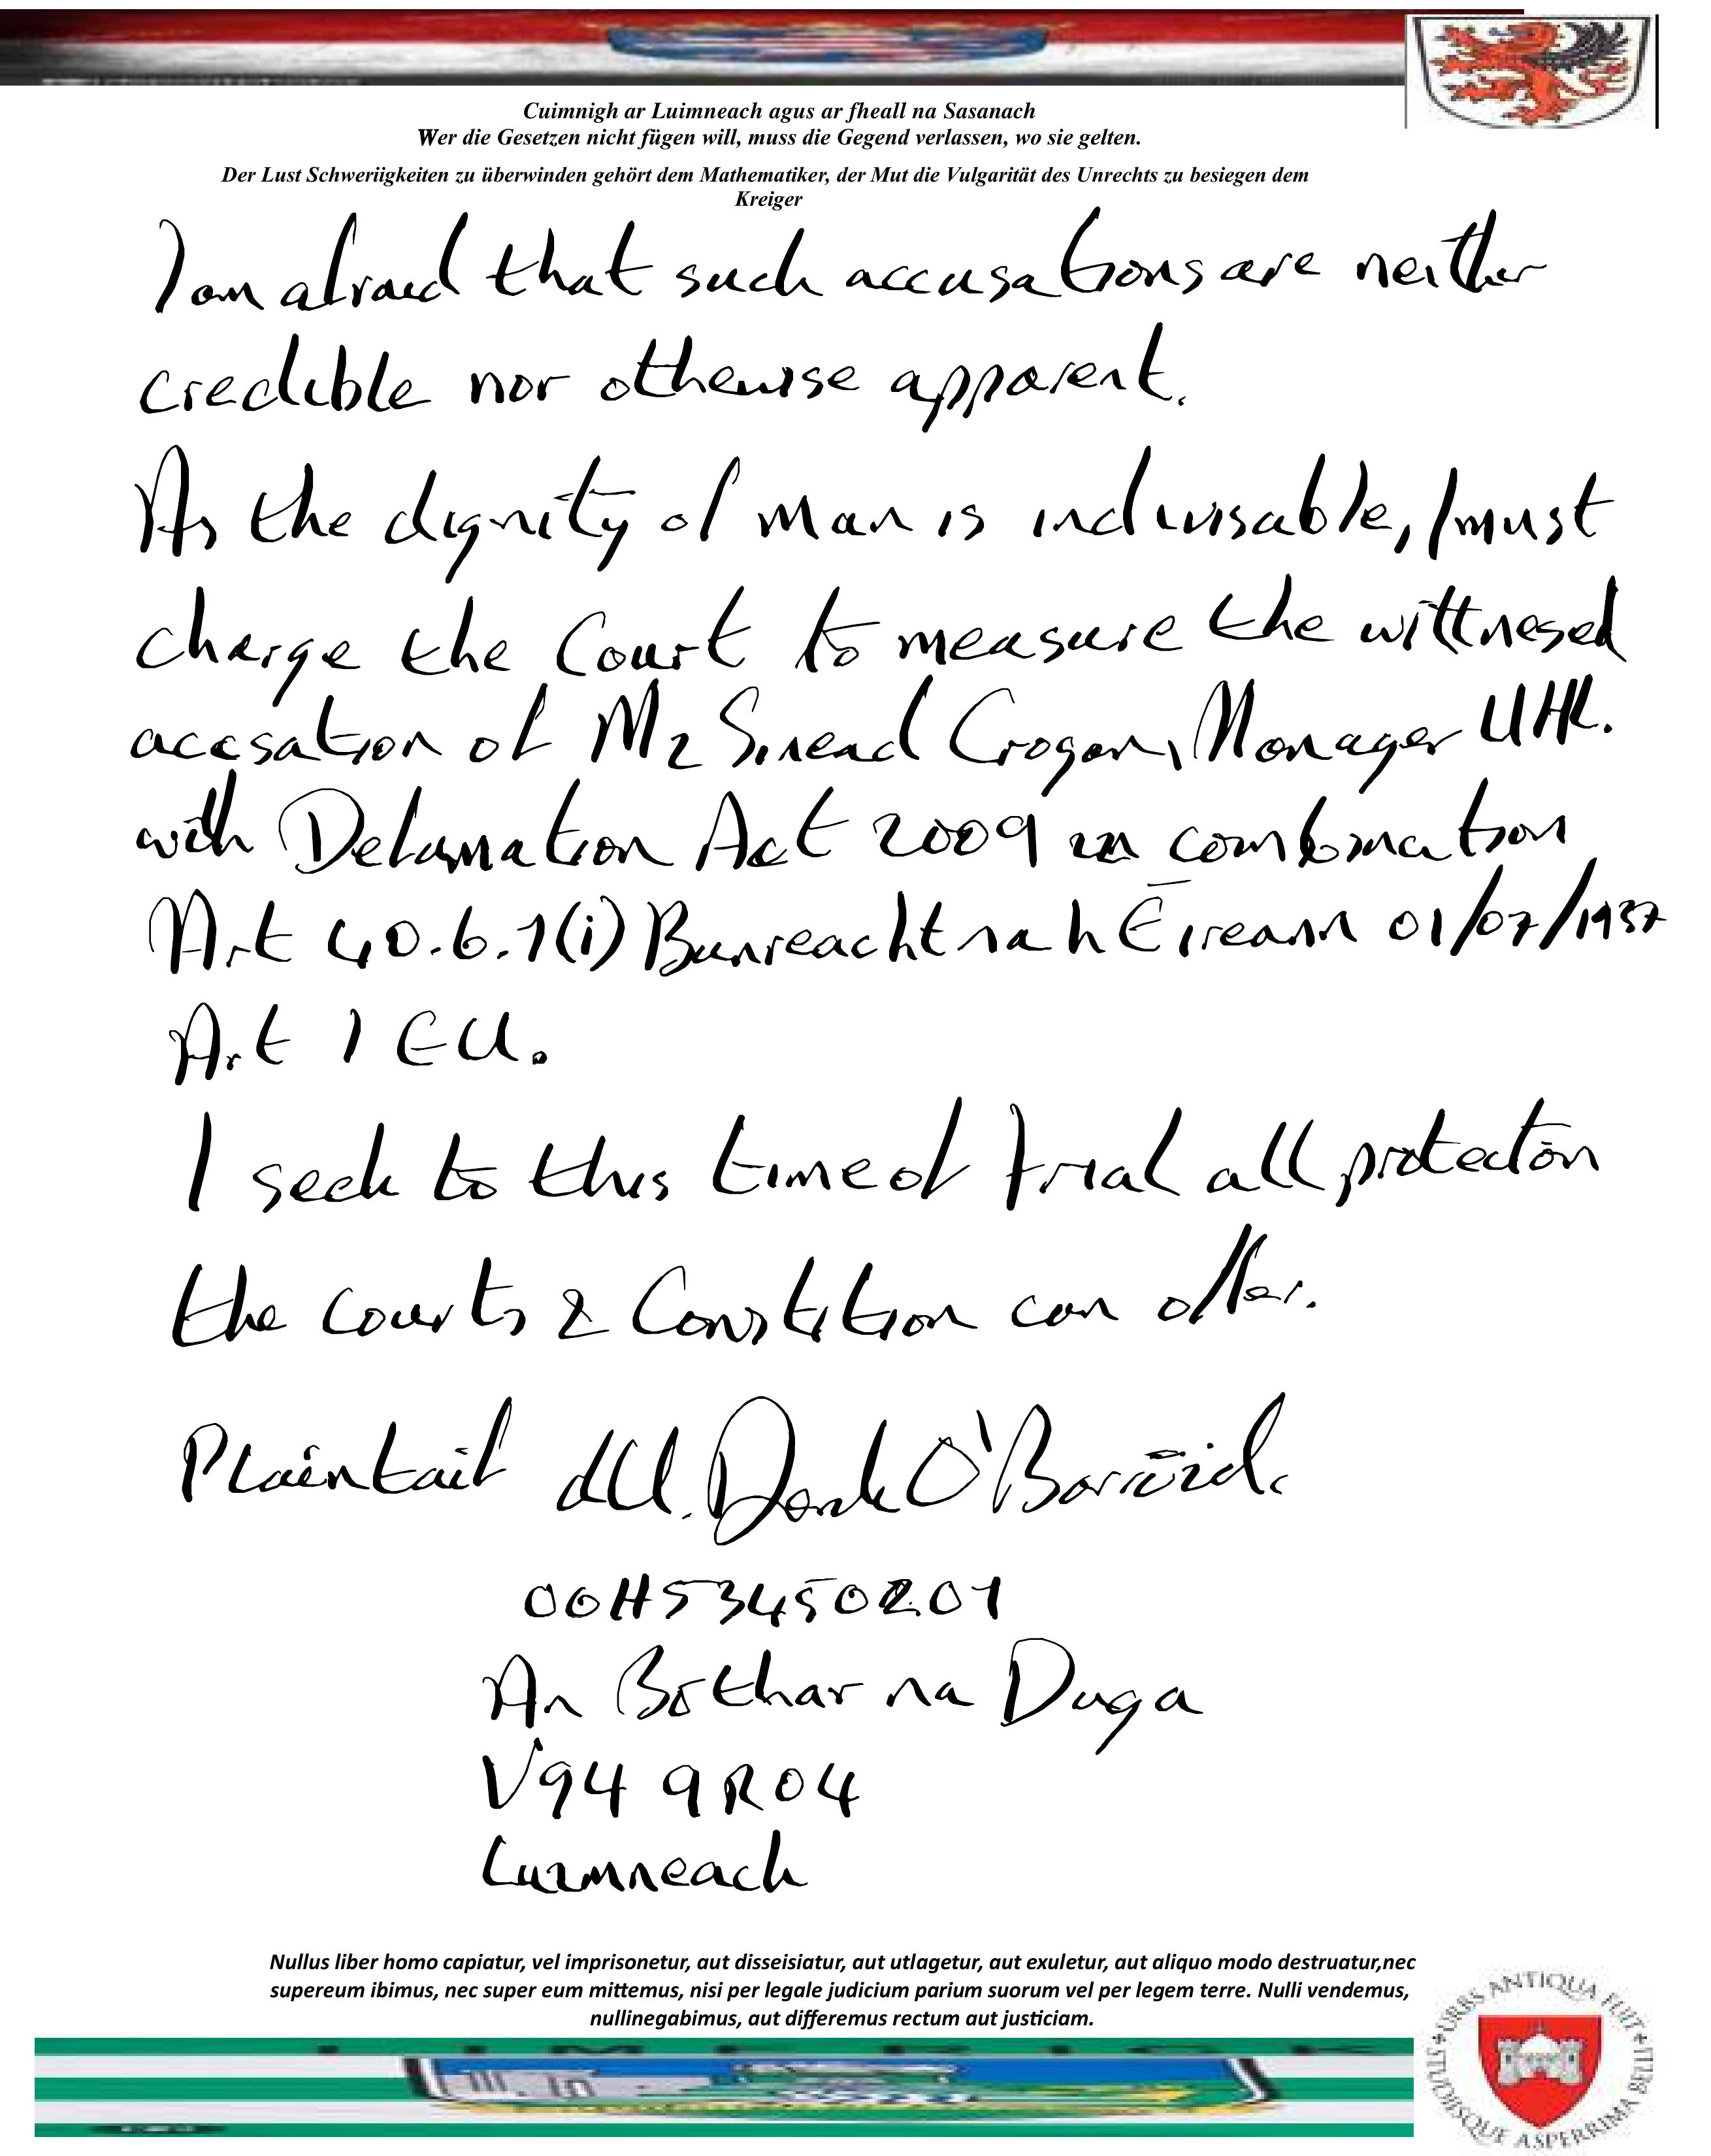 Cuimnigh ar Luimneach agus ar fheall na Sasanach
Wer die Gesetzen nicht fügen will, muss die Gegend verlassen, wo sie gelten.
Der Lust Schweriigkeiten zu überwinden gehört dem Mathematiker, der Mut die Vulgarität des Unrechts zu besiegen dem
Kreiger
I am afraid that such accusations are neither
credible nor otherwise apparent.
As the dignity of Man is indivisable, I must
charge the Court to measure the wittnesed
accsation of Ms Sinead Crogan, Manager UHL.
with Defamation Act 2009 in combination
Art 40.6.1(i) Bunreacht na hÉireann 01/07/1937
Art 1 EU.
I seek to this time of trial all protection
the Courts & Constition can offer.
Plaintaif
00H53450201
An Bothar na Duga
V94 9R04
Luimneach
Nullus liber homo capiatur, vel imprisonetur, aut disseisiatur, aut utlagetur, aut exuletur, aut aliquo modo destruatur,nec
supereum ibimus, nec super eum mittemus, nisi per legale judicium parium suorum vel per legem terre. Nulli vendemus,
nullinegabimus, aut differemus rectum aut justiciam.
URBS ANTIQUA FUIT STUDIISQUE ASPERRIMA BELLI